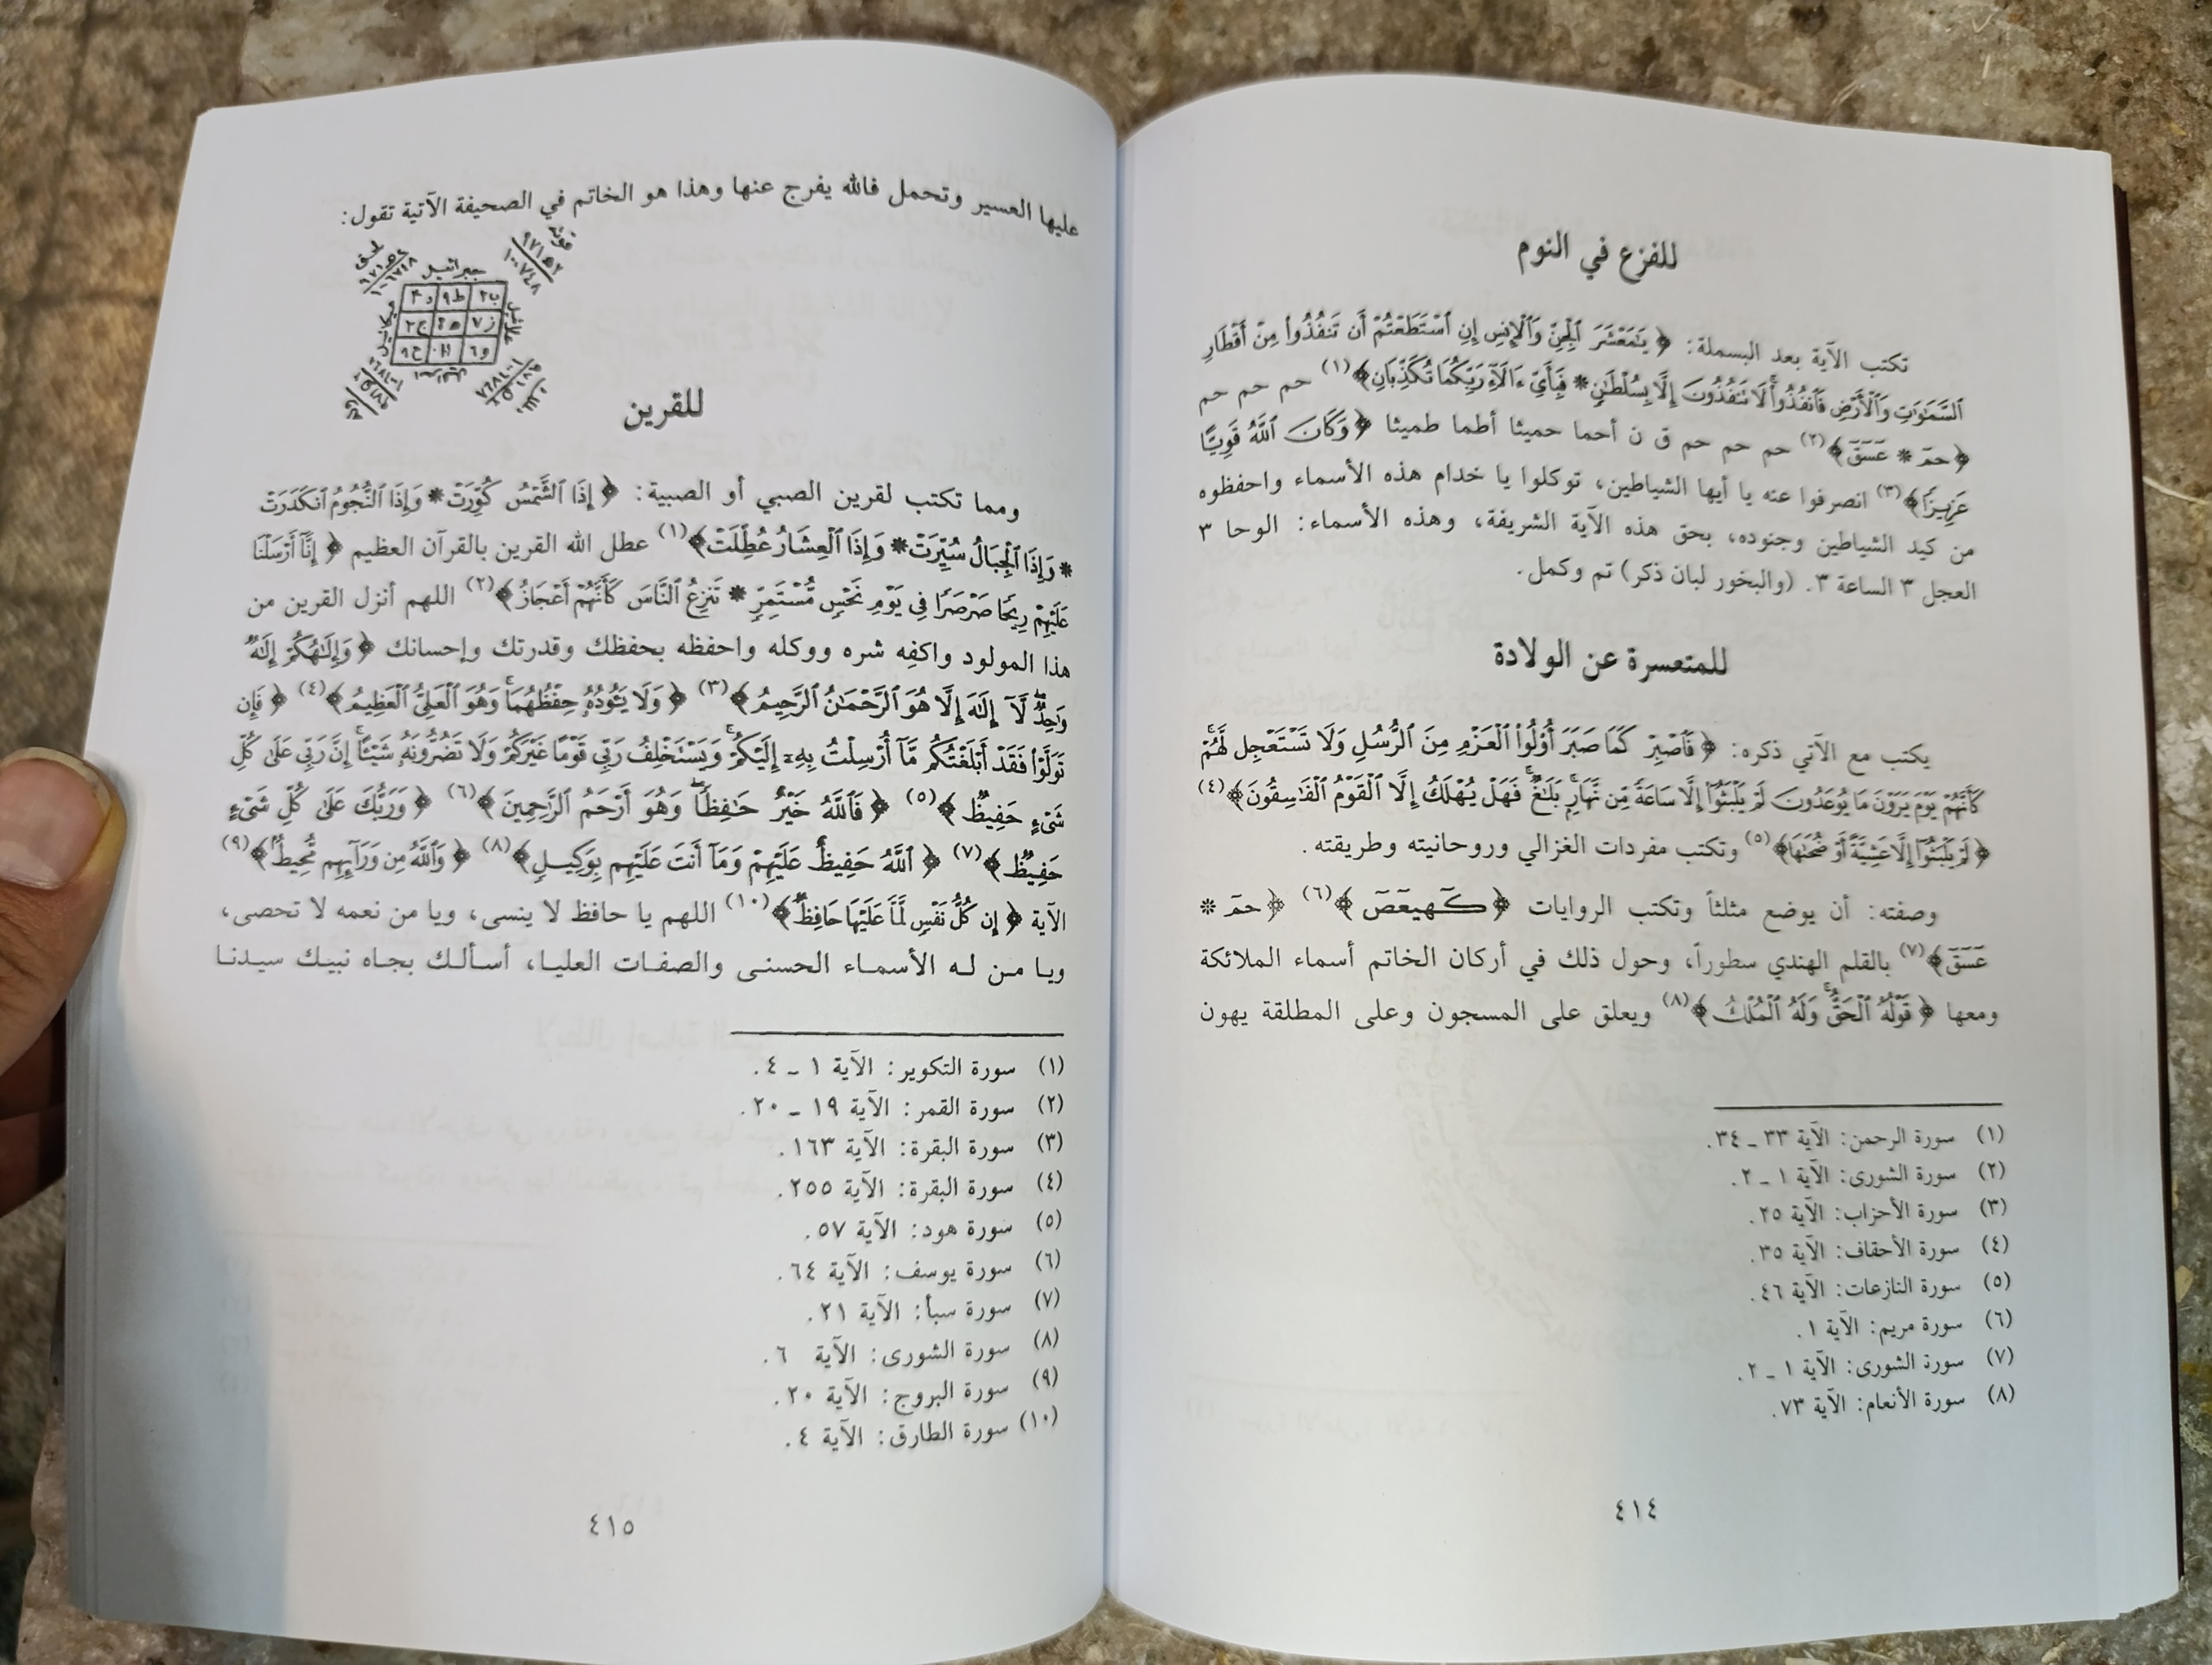 للفزع في النوم
تكتب الآية بعد البسملة: ﴿ يَٰمَعْشَرَ ٱلْجِنِّ وَٱلْإِنسِ إِنِ ٱسْتَطَعْتُمْ أَن تَنفُذُوا۟ مِنْ أَقْطَارِ
ٱلسَّمَٰوَٰتِ وَٱلْأَرْضِ فَٱنفُذُوا۟ۚ لَا تَنفُذُونَ إِلَّا بِسُلْطَٰنٍ * فَبِأَىِّ ءَالَآءِ رَبِّكُمَا تُكَذِّبَانِ ﴾(١) حم حم حم حم
﴿ حمٓ * عٓسٓقٓ ﴾(٢) حم حم حم حم ق ن أحما حميثا أطما طميثا ﴿ وَكَانَ ٱللَّهُ قَوِيًّا
عَزِيزًا ﴾(٣) انصرفوا عنه يا أيها الشياطين، توكلوا يا خدام هذه الأسماء واحفظوه
من كيد الشياطين وجنوده، بحق هذه الآية الشريفة، وهذه الأسماء: الوحا ٣
العجل ٣ الساعة ٣. (والبخور لبان ذكر) تم وكمل.
للمتعسرة عن الولادة
يكتب مع الآتي ذكره: ﴿ فَٱصْبِرْ كَمَا صَبَرَ أُو۟لُوا۟ ٱلْعَزْمِ مِنَ ٱلرُّسُلِ وَلَا تَسْتَعْجِل لَّهُمْۚ
كَأَنَّهُمْ يَوْمَ يَرَوْنَ مَا يُوعَدُونَ لَمْ يَلْبَثُوٓا۟ إِلَّا سَاعَةً مِّن نَّهَارٍۭۚ بَلَٰغٌۚ فَهَلْ يُهْلَكُ إِلَّا ٱلْقَوْمُ ٱلْفَٰسِقُونَ ﴾(٤)
﴿ لَمْ يَلْبَثُوٓا۟ إِلَّا عَشِيَّةً أَوْ ضُحَىٰهَا ﴾(٥) وتكتب مفردات الغزالي وروحانيته وطريقته.
وصفته: أن يوضع مثلثاً وتكتب الروايات ﴿ كٓهيعٓصٓ ﴾(٦) ﴿ حمٓ *
عٓسٓقٓ ﴾(٧) بالقلم الهندي سطوراً، وحول ذلك في أركان الخاتم أسماء الملائكة
ومعها ﴿ قَوْلُهُ ٱلْحَقُّۚ وَلَهُ ٱلْمُلْكُ ﴾(٨) ويعلق على المسجون وعلى المطلقة يهون
(١) سورة الرحمن: الآية ٣٣ ـ ٣٤.
(٢) سورة الشورى: الآية ١ ـ ٢.
(٣) سورة الأحزاب: الآية ٢٥.
(٤) سورة الأحقاف: الآية ٣٥.
(٥) سورة النازعات: الآية ٤٦.
(٦) سورة مريم: الآية ١.
(٧) سورة الشورى: الآية ١ ـ ٢.
(٨) سورة الأنعام: الآية ٧٣.
٤١٤
عليها العسير وتحمل فالله يفرج عنها وهذا هو الخاتم في الصحيفة الآتية تقول:
جبرائيل
للقرين
ومما تكتب لقرين الصبي أو الصبية: ﴿ إِذَا ٱلشَّمْسُ كُوِّرَتْ * وَإِذَا ٱلنُّجُومُ ٱنكَدَرَتْ
* وَإِذَا ٱلْجِبَالُ سُيِّرَتْ * وَإِذَا ٱلْعِشَارُ عُطِّلَتْ ﴾(١) عطل الله القرين بالقرآن العظيم ﴿ إِنَّآ أَرْسَلْنَا
عَلَيْهِمْ رِيحًا صَرْصَرًا فِى يَوْمِ نَحْسٍ مُّسْتَمِرٍّ * تَنزِعُ ٱلنَّاسَ كَأَنَّهُمْ أَعْجَازُ ﴾(٢) اللهم أنزل القرين من
هذا المولود واكفِه شره ووكله واحفظه بحفظك وقدرتك وإحسانك ﴿ وَإِلَٰهُكُمْ إِلَٰهٌ
وَٰحِدٌۖ لَّآ إِلَٰهَ إِلَّا هُوَ ٱلرَّحْمَٰنُ ٱلرَّحِيمُ ﴾(٣) ﴿ وَلَا يَـُٔودُهُۥ حِفْظُهُمَاۚ وَهُوَ ٱلْعَلِىُّ ٱلْعَظِيمُ ﴾(٤) ﴿ فَإِن
تَوَلَّوْا۟ فَقَدْ أَبْلَغْتُكُم مَّآ أُرْسِلْتُ بِهِۦٓ إِلَيْكُمْۚ وَيَسْتَخْلِفُ رَبِّى قَوْمًا غَيْرَكُمْ وَلَا تَضُرُّونَهُۥ شَيْـًٔاۚ إِنَّ رَبِّى عَلَىٰ كُلِّ
شَىْءٍ حَفِيظٌ ﴾(٥) ﴿ فَٱللَّهُ خَيْرٌ حَٰفِظًاۖ وَهُوَ أَرْحَمُ ٱلرَّٰحِمِينَ ﴾(٦) ﴿ وَرَبُّكَ عَلَىٰ كُلِّ شَىْءٍ
حَفِيظٌ ﴾(٧) ﴿ ٱللَّهُ حَفِيظٌ عَلَيْهِمْ وَمَآ أَنتَ عَلَيْهِم بِوَكِيلٍ ﴾(٨) ﴿ وَٱللَّهُ مِن وَرَآئِهِم مُّحِيطٌۢ ﴾(٩)
الآية ﴿ إِن كُلُّ نَفْسٍ لَّمَّا عَلَيْهَا حَافِظٌ ﴾(١٠) اللهم يا حافظ لا ينسى، ويا من نعمه لا تحصى،
ويا من له الأسماء الحسنى والصفات العليا، أسألك بجاه نبيك سيدنا
(١) سورة التكوير: الآية ١ ـ ٤.
(٢) سورة القمر: الآية ١٩ ـ ٢٠.
(٣) سورة البقرة: الآية ١٦٣.
(٤) سورة البقرة: الآية ٢٥٥.
(٥) سورة هود: الآية ٥٧.
(٦) سورة يوسف: الآية ٦٤.
(٧) سورة سبأ: الآية ٢١.
(٨) سورة الشورى: الآية ٦.
(٩) سورة البروج: الآية ٢٠.
(١٠) سورة الطارق: الآية ٤.
٤١٥